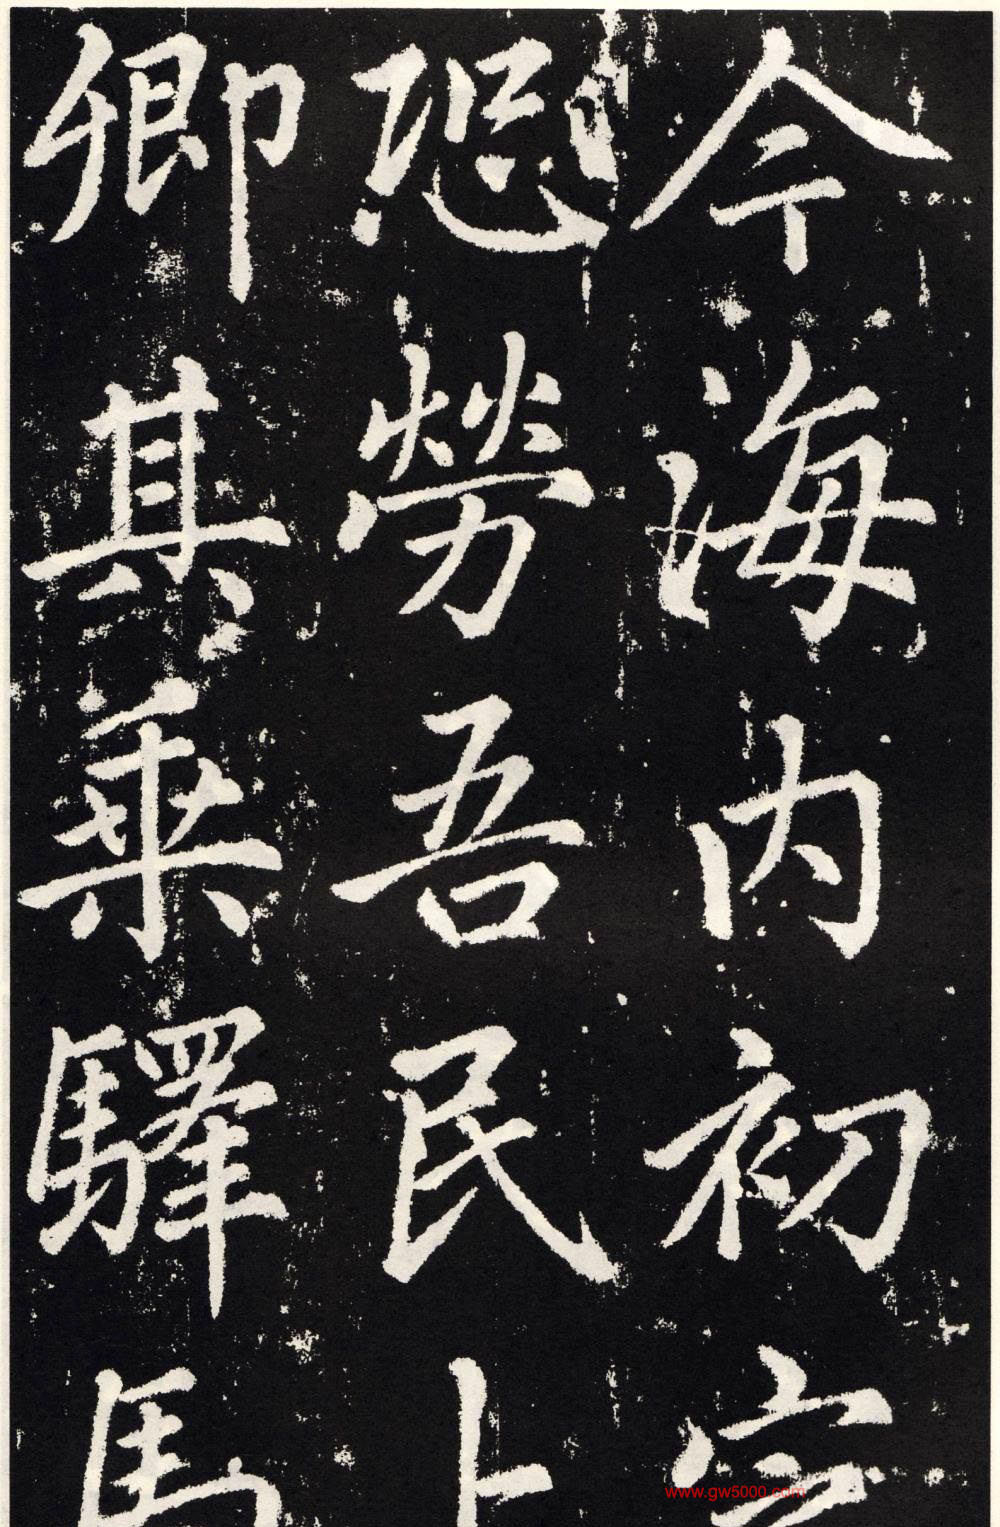 今海内初定
恐劳吾民卜
卿其乗驛馬
www.gw5000.com